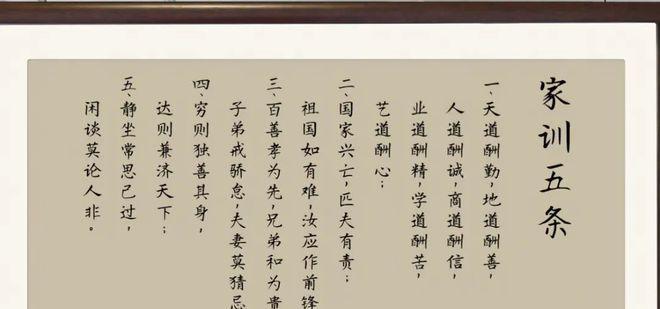 家训五条
一、天道酬勤，地道酬善，
人道酬诚，商道酬信，
业道酬精，学道酬苦，
艺道酬心；
二、国家兴亡，匹夫有责；
祖国如有难，汝应作前锋
三、百善孝为先，兄弟和为贵
子弟戒骄怠，夫妻莫猜忌
四、穷则独善其身，
达则兼济天下；
五、静坐常思己过，
闲谈莫论人非。